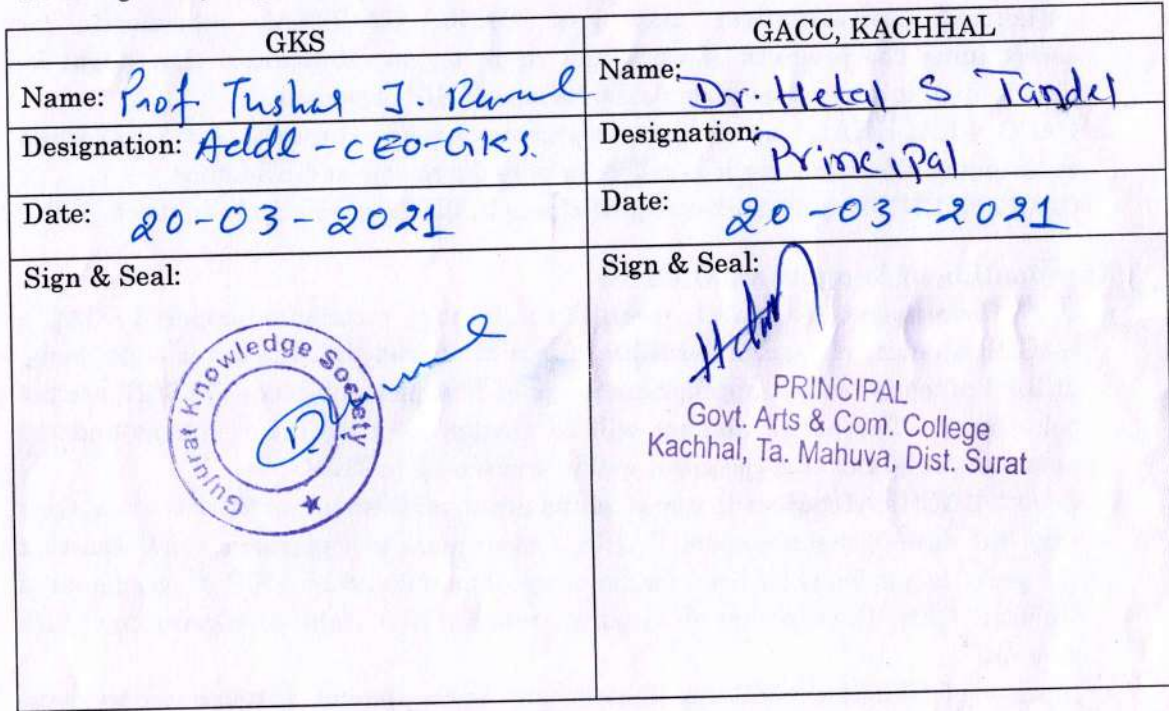 GKS
GACC, KACHHAL
Name: Prof. Tushar J. Raval
Name: Dr. Hetal S Tandel
Designation: Addl-CEO-GKS.
Designation: Principal
Date: 20-03-2021
Date: 20-03-2021
Sign & Seal:
Sign & Seal:
Gujarat Knowledge Society
PRINCIPAL
Govt. Arts & Com. College
Kachhal, Ta. Mahuva, Dist. Surat